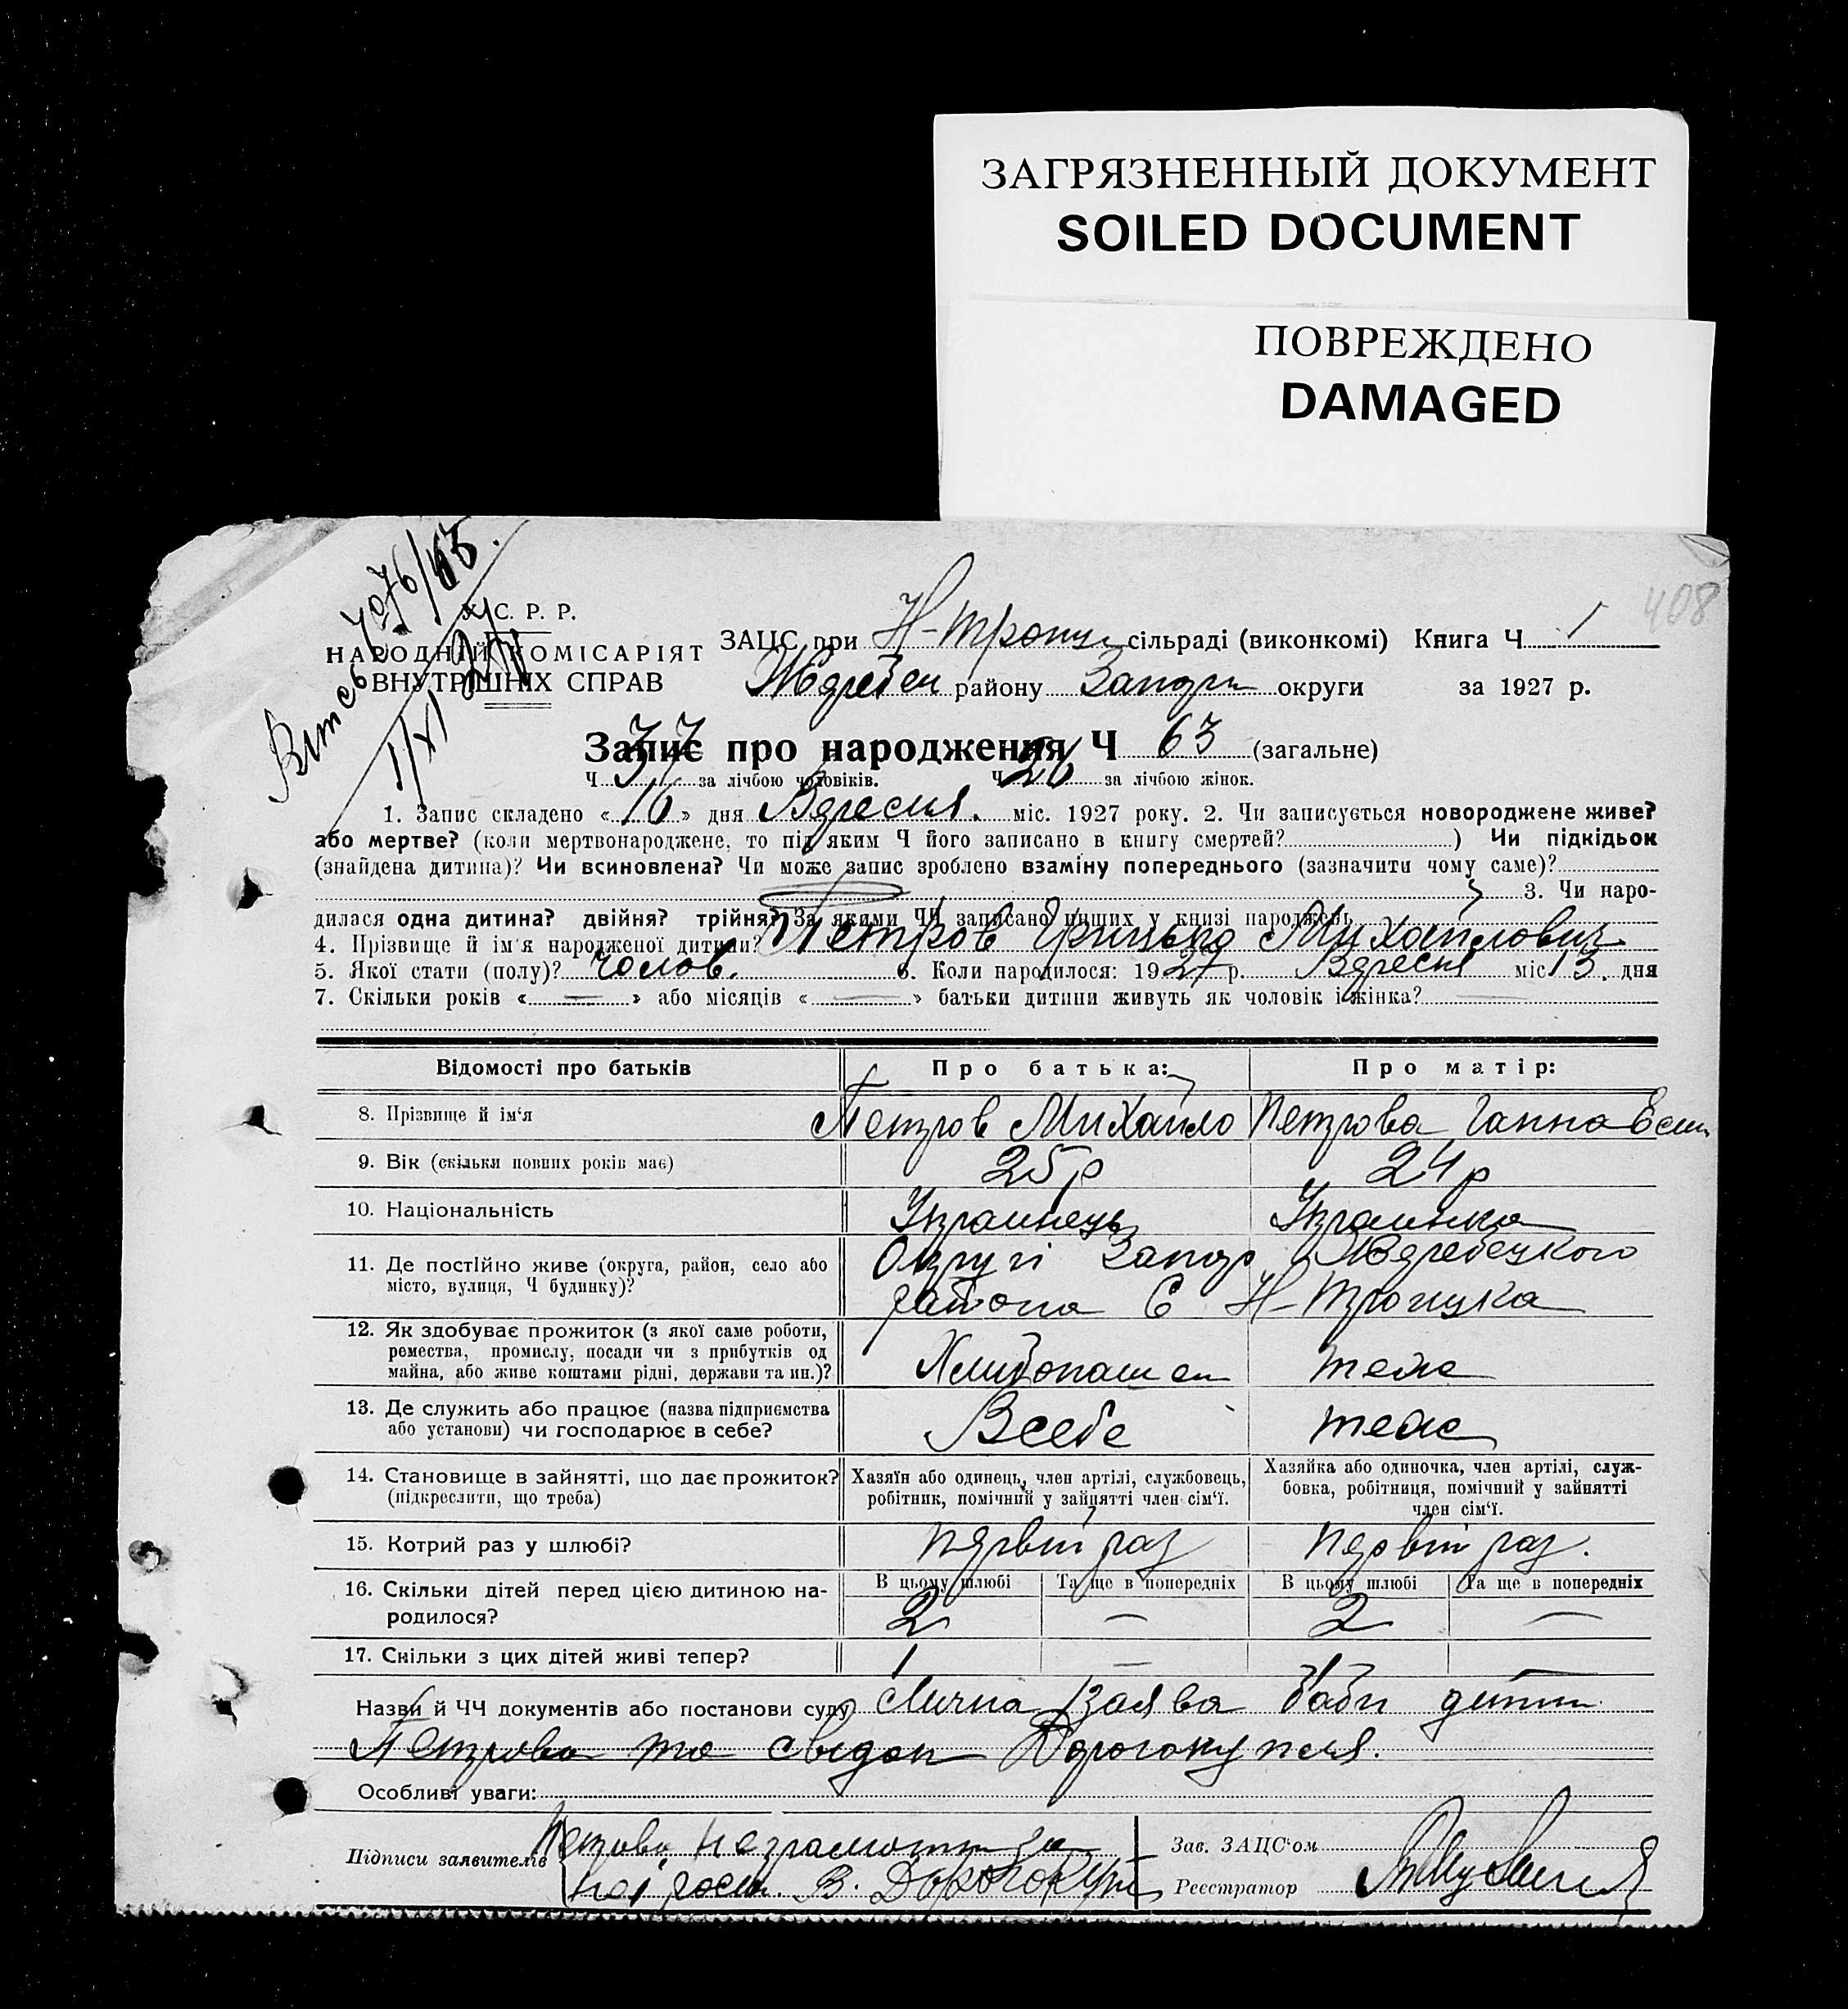 ЗАГРЯЗНЕННЫЙ ДОКУМЕНТ
SOILED DOCUMENT
ПОВРЕЖДЕНО
DAMAGED
408
У. С. Р. Р.
НАРОДНІЙ КОМІСАРІЯТ
ВНУТРІШНІХ СПРАВ
ЗАЦС при Н-Троицк сільраді (виконкомі) Книга Ч 1
Жеребец району Запор округи за 1927 р.
Запис про народження Ч 63 (загальне)
Ч 37 за лічбою чоловіків. Ч 26 за лічбою жінок.
1. Запис складено «16» дня Вересня міс. 1927 року. 2. Чи записується новороджене живе?
або мертве? (коли мертвонароджене, то під яким Ч його записано в книгу смертей? ) Чи підкідьок
(знайдена дитина)? Чи всиновлена? Чи може запис зроблено взаміну попереднього (зазначити чому саме)?
3. Чи наро-
дилася одна дитина? двійня? трійня? За якими ЧЧ записано инших у книзі народжень
4. Прізвище й ім'я народженої дитини? Петров Грицько Михайлович
5. Якої стати (полу)? чолов. 6. Коли народилося: 1927 р. Вересня міс 13. дня
7. Скільки років « — » або місяців « — » батьки дитини живуть як чоловік і жінка? —
Відомості про батьків Про батька: Про матір:
8. Прізвище й ім'я Петров Михайло Петрова Ганна
9. Вік (скільки повних років має) 25 р 24 р
10. Національність Украинець Украинка
11. Де постійно живе (округа, район, село або Округі Запор Жеребецкого
місто, вулиця, Ч будинку)? района С Н-Троицка
12. Як здобуває прожиток (з якої саме роботи,
ремества, промислу, посади чи з прибутків од
майна, або живе коштами рідні, держави та ин.)? теж
13. Де служить або працює (назва підприємства Всебе теж
або установи) чи господарює в себе?
14. Становище в зайнятті, що дає прожиток? Хазяїн або одинець, член артілі, службовець, Хазяйка або одиночка, член артілі, служ-
(підкреслити, що треба) робітник, помічний у зайнятті член сім'ї. бовка, робітниця, помічний у зайнятті
член сім'ї.
15. Котрий раз у шлюбі? первий раз первий раз.
16. Скільки дітей перед цією дитиною на- В цьому шлюбі Та ще в попередніх В цьому шлюбі Та ще в попередніх
родилося? 2 — 2 —
17. Скільки з цих дітей живі тепер? 1 — 1 —
Назви й ЧЧ документів або постанови суду Лична заява баби дитини
Петрова та свидок Дорогокупля.
Особливі уваги:
Підписи заявителів Петрова неграмотн за
неі росп. В. Дорогокупл
Зав. ЗАЦС'ом
Реєстратор